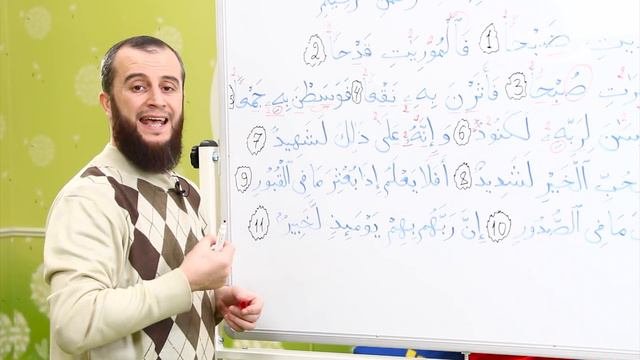 ضَبْحًا ① فَٱلْمُورِيَٰتِ قَدْحًا ②
صُبْحًا ③ فَأَثَرْنَ بِهِ نَقْعًا ④ فَوَسَطْنَ بِهِ جَمْعًا ⑤
لِرَبِّهِ لَكَنُودٌ ⑥ وَإِنَّهُ عَلَىٰ ذَٰلِكَ لَشَهِيدٌ ⑦
حُبِّ ٱلْخَيْرِ لَشَدِيدٌ ⑧ أَفَلَا يَعْلَمُ إِذَا بُعْثِرَ مَا فِي ٱلْقُبُورِ ⑨
مَا فِي ٱلصُّدُورِ ⑩ إِنَّ رَبَّهُم بِهِمْ يَوْمَئِذٍ لَّخَبِيرٌ ⑪